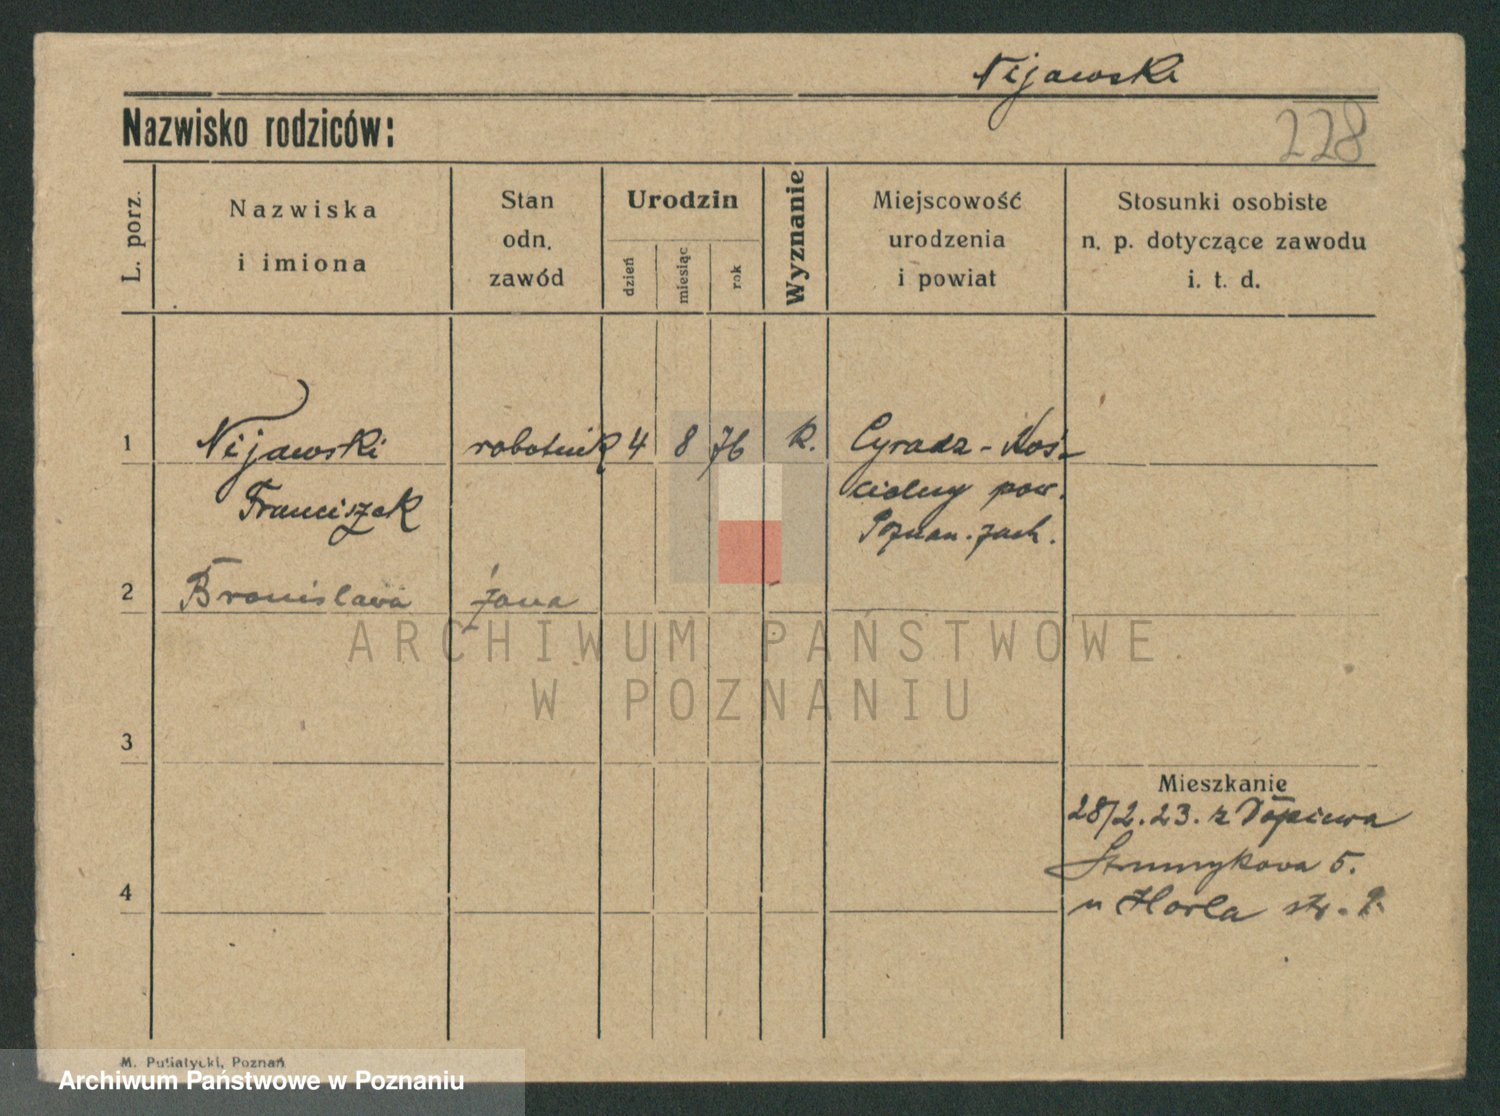 Nijawski
Nazwisko rodziców:
228
L. porz.
Nazwiska
i imiona
Stan
odn.
zawód
Urodzin
dzień
miesiąc
rok
Wyznanie
Miejscowość
urodzenia
i powiat
Stosunki osobiste
n. p. dotyczące zawodu
i. t. d.
1
Nijawski robotnik 4 8 76 k. Cyradz - Koś-
Franciszek cielny pow.
Poznan. zach.
2 Bronisława żona
ARCHIWUM PAŃSTWOWE
W POZNANIU
3
Mieszkanie
28/2.23. z Dopiewa
Strumykowa 5.
4
u Horla str.
M. Putiatycki, Poznań
Archiwum Państwowe w Poznaniu